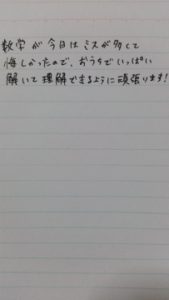 数学が今日はミスが多くて
悔しかったので、おうちでいっぱい
解いて理解できるように頑張ります!